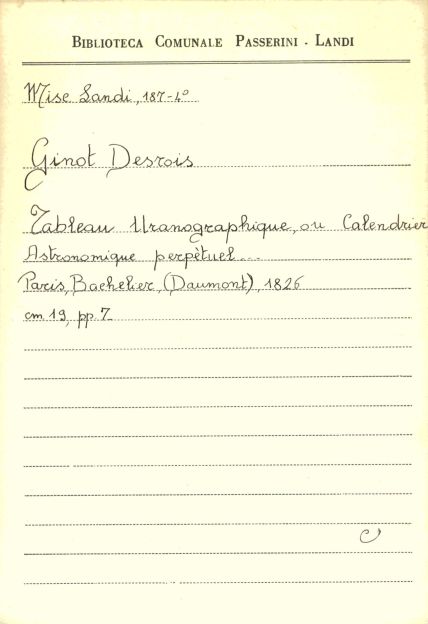 BIBLIOTECA COMUNALE PASSERINI - LANDI
Misc Landi, 187-4º
Ginot Desrois
Tableau Uranographique, ou Calendrier
Astronomique perpètuel...
Paris, Bachelier, (Daumont), 1826
cm 19, pp. 7